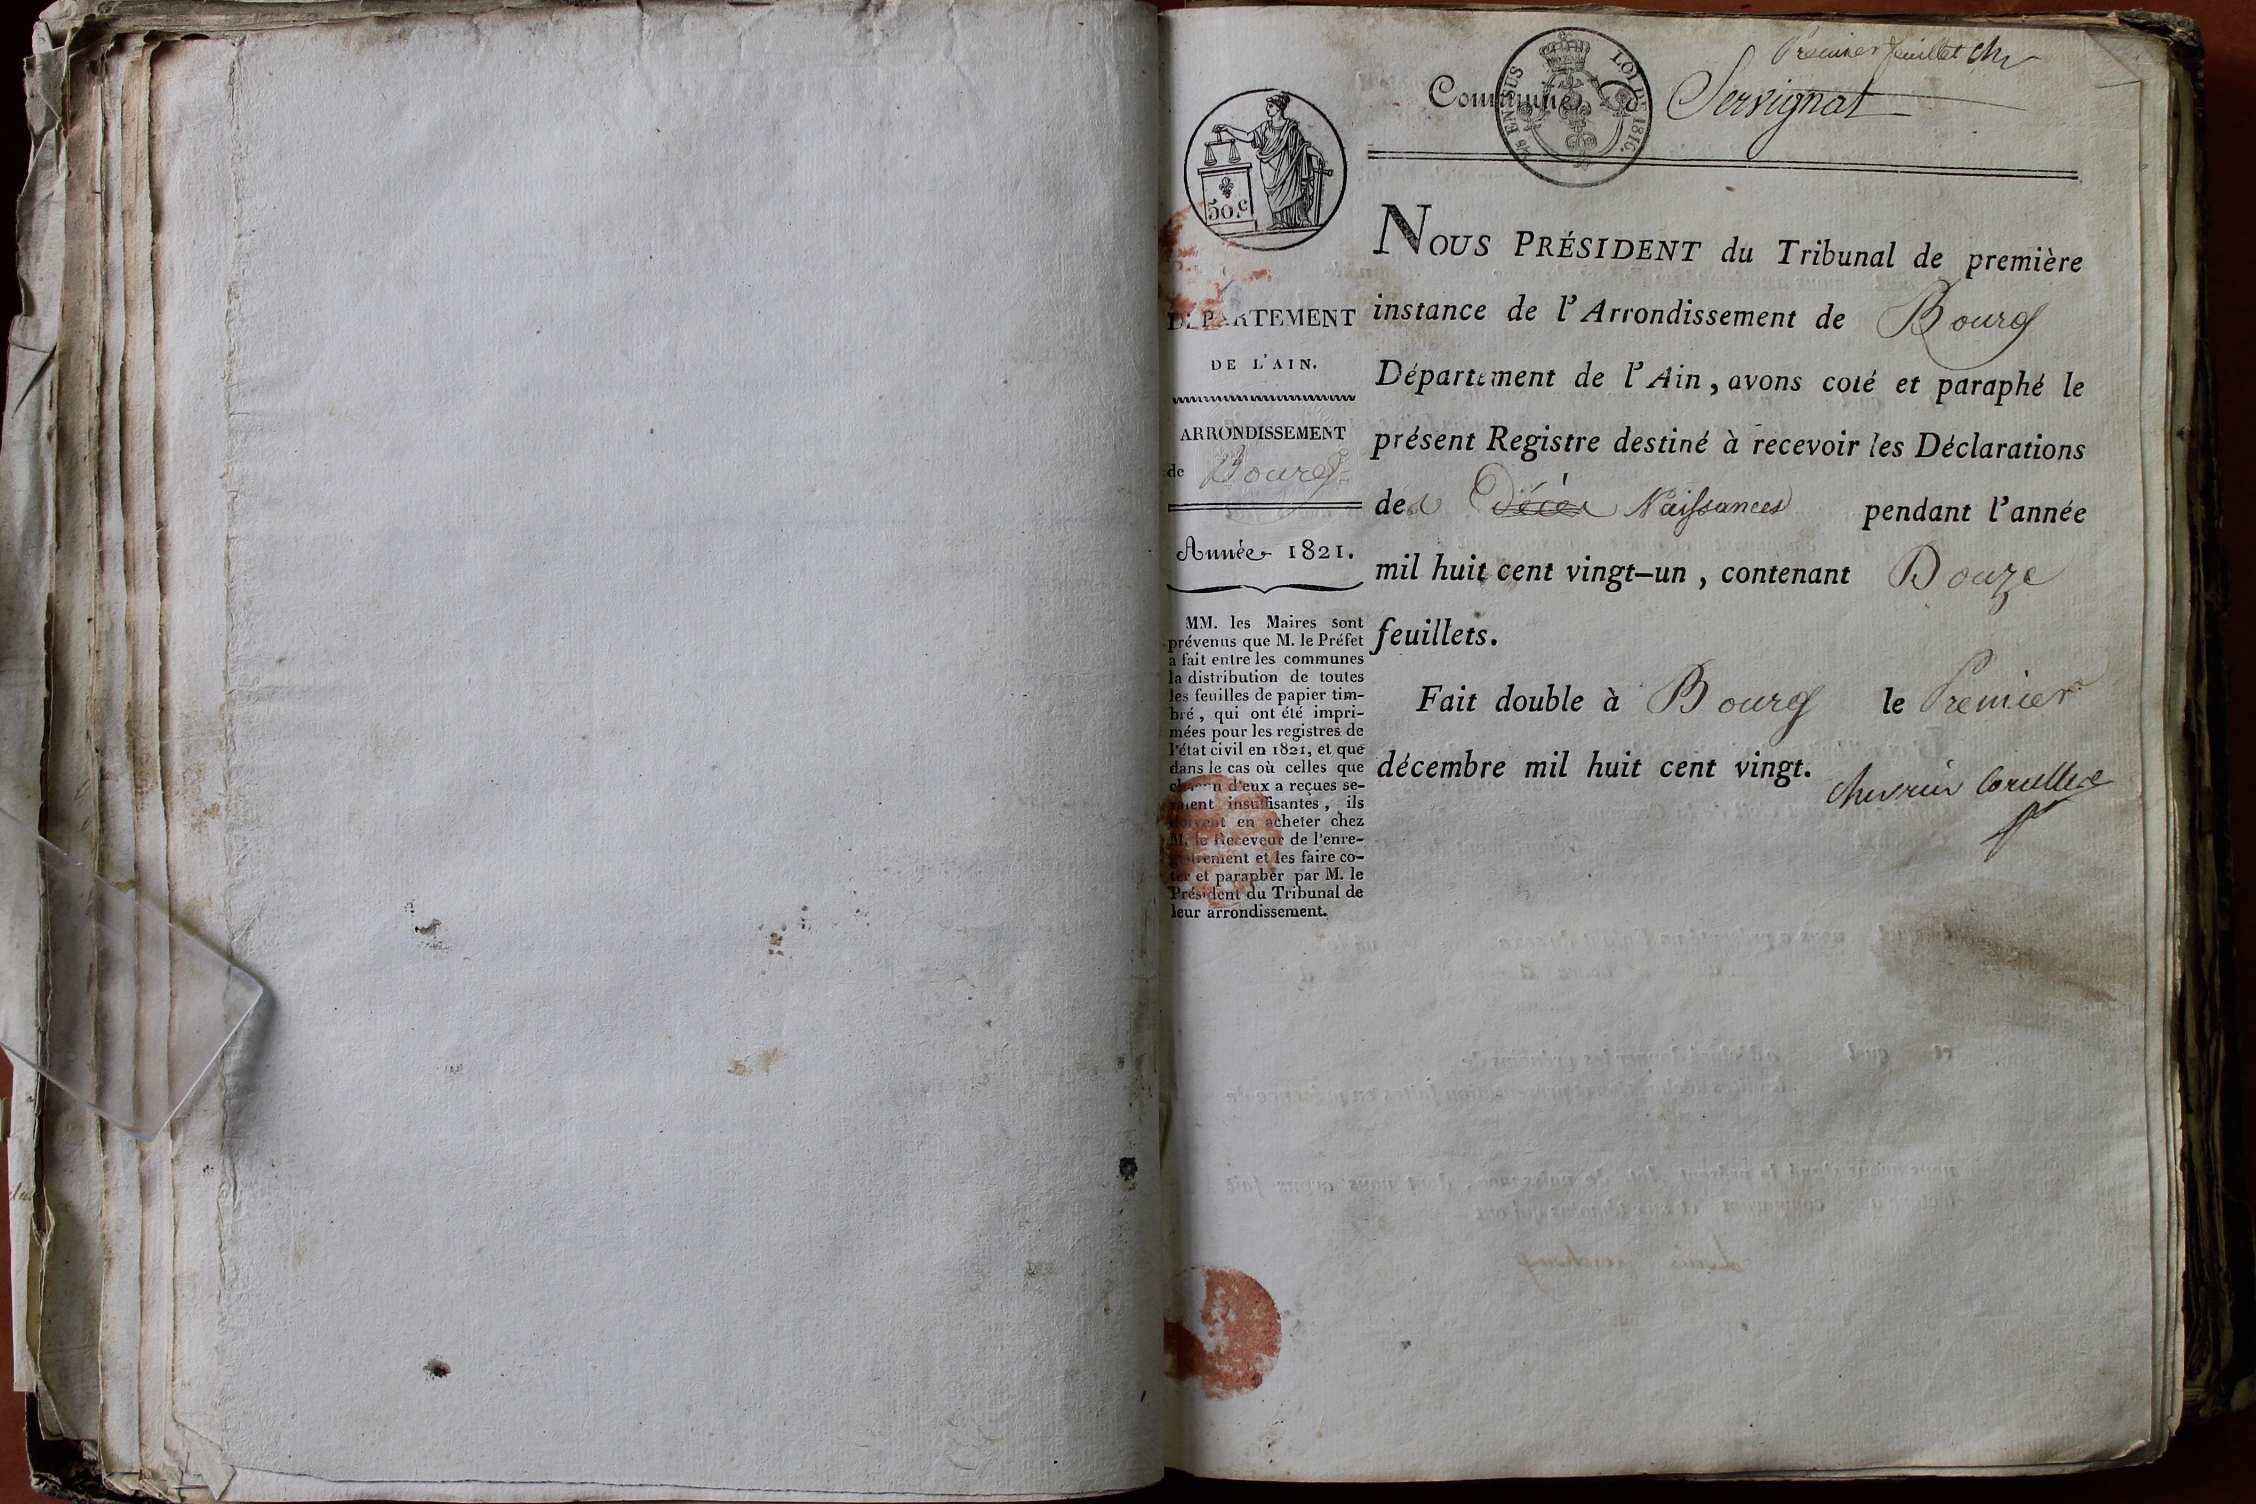 Premier feuillet
Commune de Servignat
¼ EN SUS LOI DE 1816.
50.c
NOUS PRÉSIDENT du Tribunal de première
instance de l'Arrondissement de Bourg
Département de l'Ain, avons coté et paraphé le
présent Registre destiné à recevoir les Déclarations
des Décès Naissances pendant l'année
mil huit cent vingt-un, contenant Douze
feuillets.
Fait double à Bourg le Premier
décembre mil huit cent vingt.
DÉPARTEMENT
DE L'AIN.
ARRONDISSEMENT
de Bourg
Année 1821.
MM. les Maires sont
prévenus que M. le Préfet
a fait entre les communes
la distribution de toutes
les feuilles de papier tim-
bré, qui ont été impri-
mées pour les registres de
l'état civil en 1821, et que
dans le cas où celles que
chacun d'eux a reçues se-
raient insuffisantes, ils
doivent en acheter chez
M. le Receveur de l'enre-
gistrement et les faire co-
ter et parapher par M. le
Président du Tribunal de
leur arrondissement.